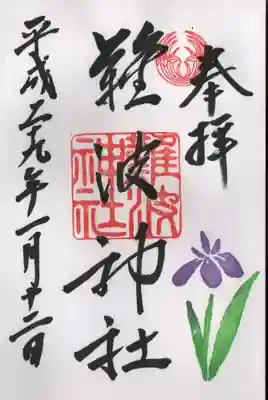 奉拝
難波神社
難波
神社
平成二十九年一月十二日